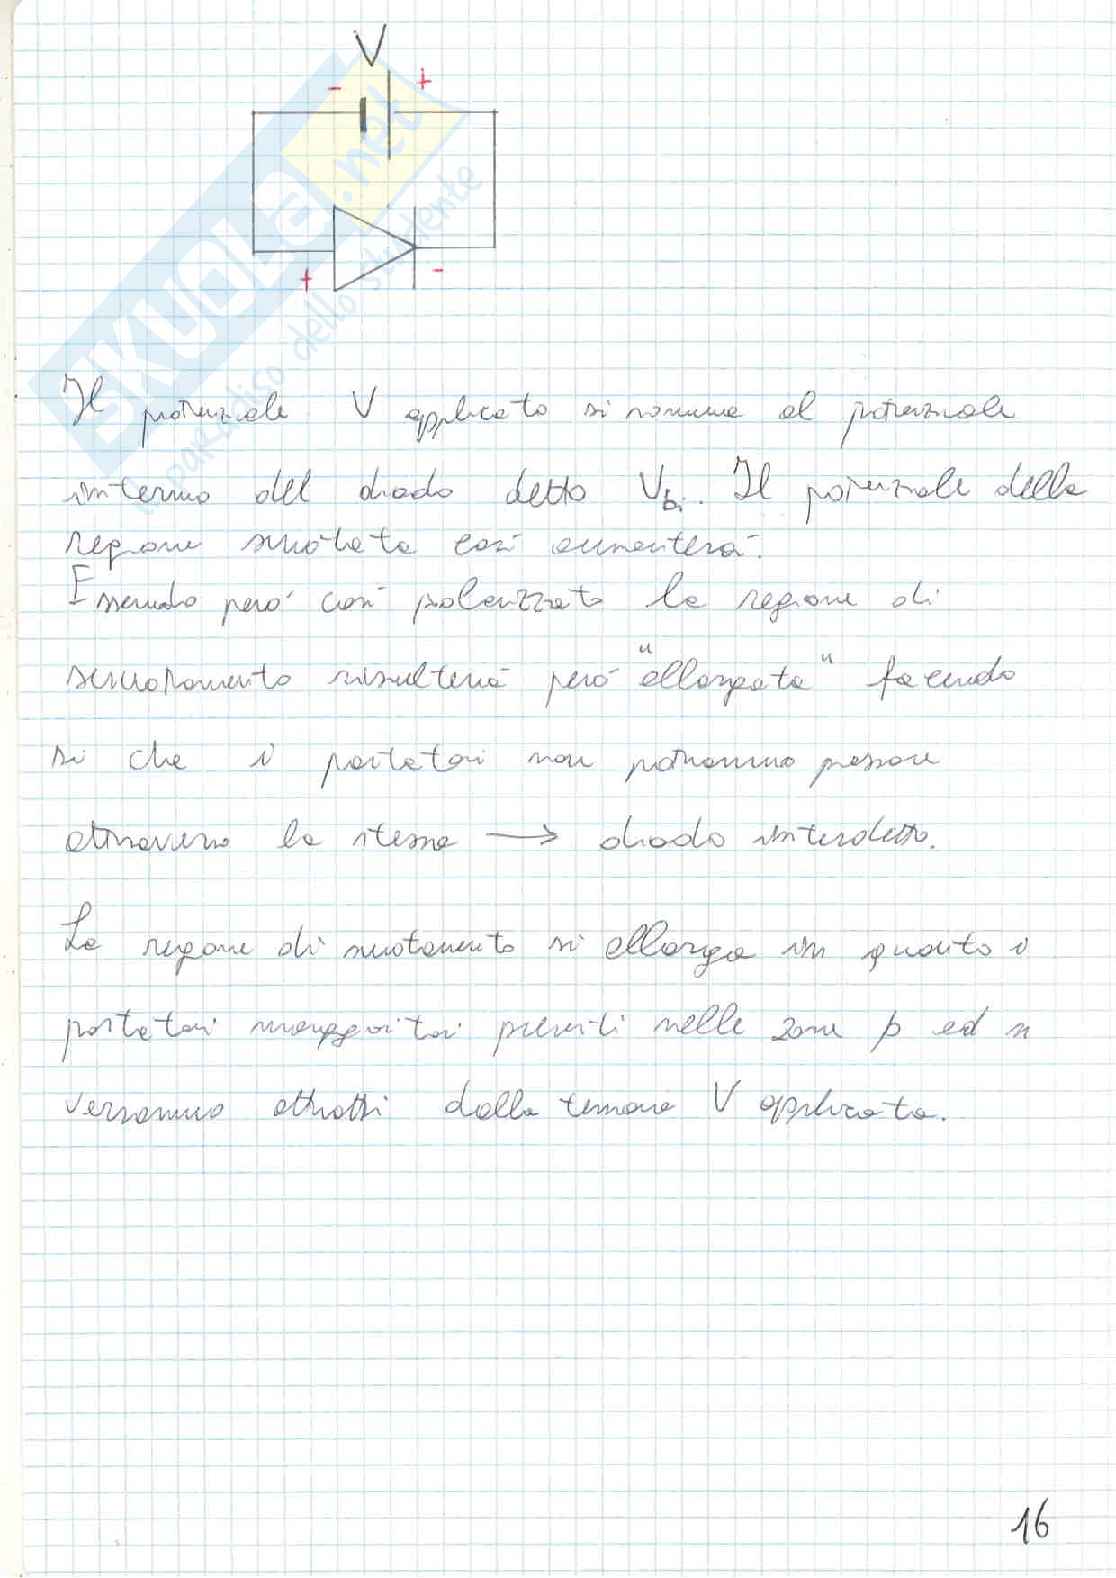 V
- +
+ -
SKUOLA.net
il paradiso dello studente
Il potenziale V applicato si somma al potenziale
interno del diodo detto Vbi. Il potenziale della
regione svuotata così aumenterà.
Essendo però così polarizzato la regione di
svuotamento risulterà però "allargata" facendo
si che i portatori non potranno passare
attraverso la stessa → diodo interdetto.
La regione di svuotamento si allarga in quanto i
portatori maggioritari presenti nelle zone p ed n
verranno attratti dalla tensione V applicata.
16